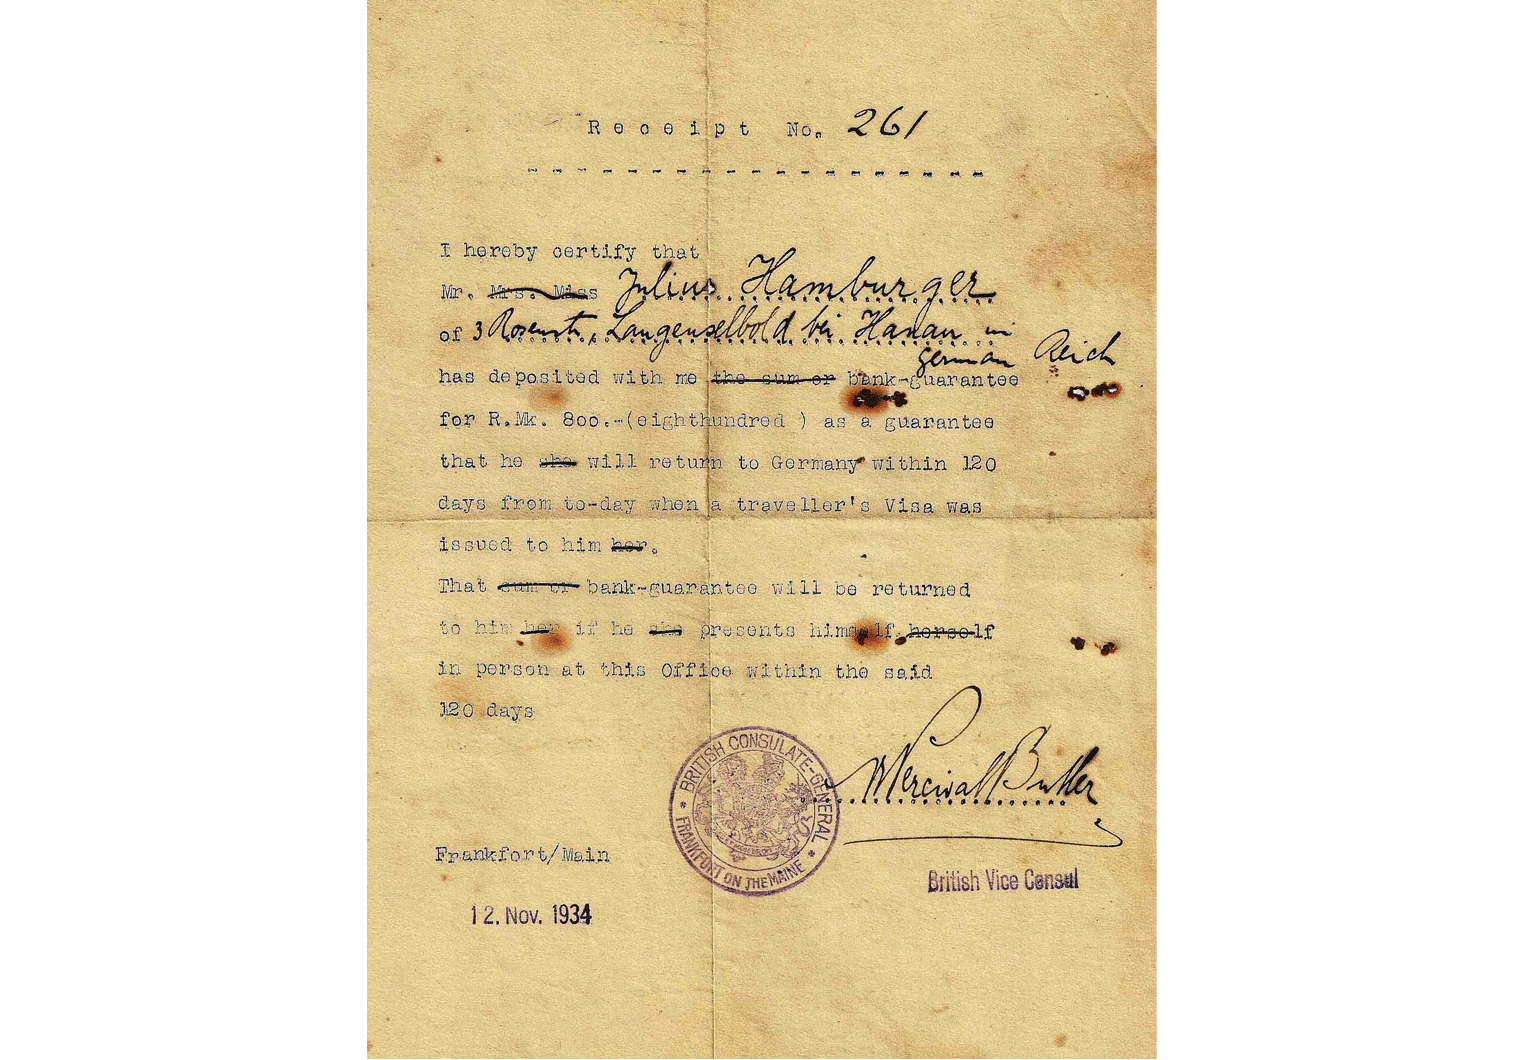 Receipt No. 261
I hereby certify that
Mr. Mrs. Miss Julius Hamburger
of 3 Rosenstr., Langenselbold bei Hanau in
german Reich
has deposited with me the sum or bank-guarantee
for R.Mk. 800.-(eighthundred ) as a guarantee
that he she will return to Germany within 120
days from to-day when a traveller's Visa was
issued to him her.
That sum or bank-guarantee will be returned
to him her if he she presents himself herself
in person at this Office within the said
120 days
BRITISH CONSULATE-GENERAL
FRANKFURT ON THE MAINE
Percival Butler
British Vice Consul
Frankfort/Main
12. Nov. 1934